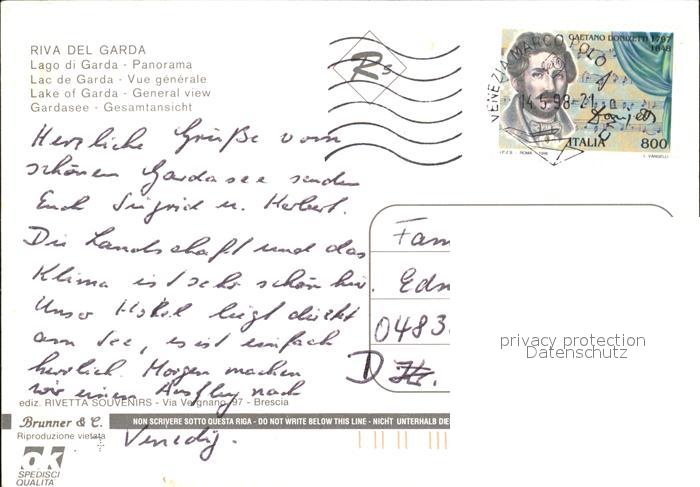 RIVA DEL GARDA
Lago di Garda - Panorama
Lac de Garda - Vue générale
Lake of Garda - General view
Gardasee - Gesamtansicht
Rs
VENEZIA MARCO POLO
14.5.98-21
GAETANO DONIZETTI 1797
1848
ITALIA
800
I.P.Z.S. - ROMA - 1998
T. VANGELLI
Herzliche Grüße vom
schönen Gardasee senden
Euch Sigrid u. Herbert.
Die Landschaft und das
Klima ist sehr schön hier.
Unser Hotel liegt direkt
am See, es ist einfach
herrlich. Morgen machen
wir einen Ausflug nach
Venedig.
Fam
Edm
0483
D
privacy protection
Datenschutz
ediz. RIVETTA SOUVENIRS - Via Vergnano, 97 - Brescia
Brunner & C.
NON SCRIVERE SOTTO QUESTA RIGA - DO NOT WRITE BELOW THIS LINE - NICHT UNTERHALB DIE
Riproduzione vietata
ok
SPEDISCI
QUALITÀ